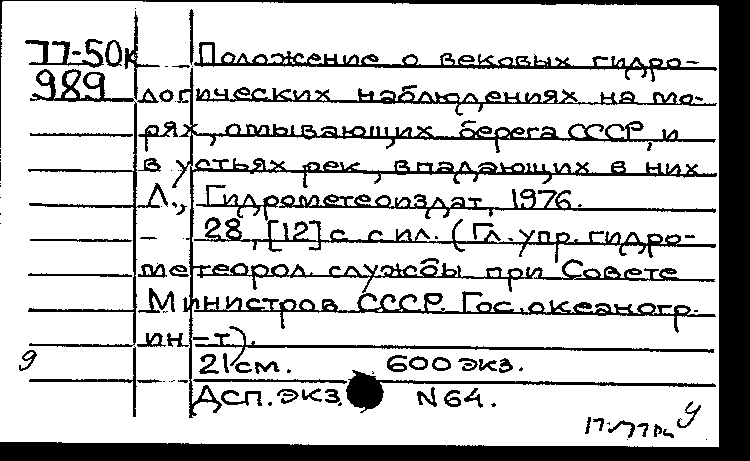 77-50к Положение о вековых гидро-
989 логических наблюдениях на мо-
рях, омывающих берега СССР, и
в устьях рек, впадающих в них
Л., Гидрометеоиздат, 1976.
- 28, [12] с. с ил. (Гл. упр. гидро-
метеорол. службы при Совете
Министров СССР. Гос. океаногр.
ин-т).
9 21 см. 600 экз.
Дсп. экз. N 64.